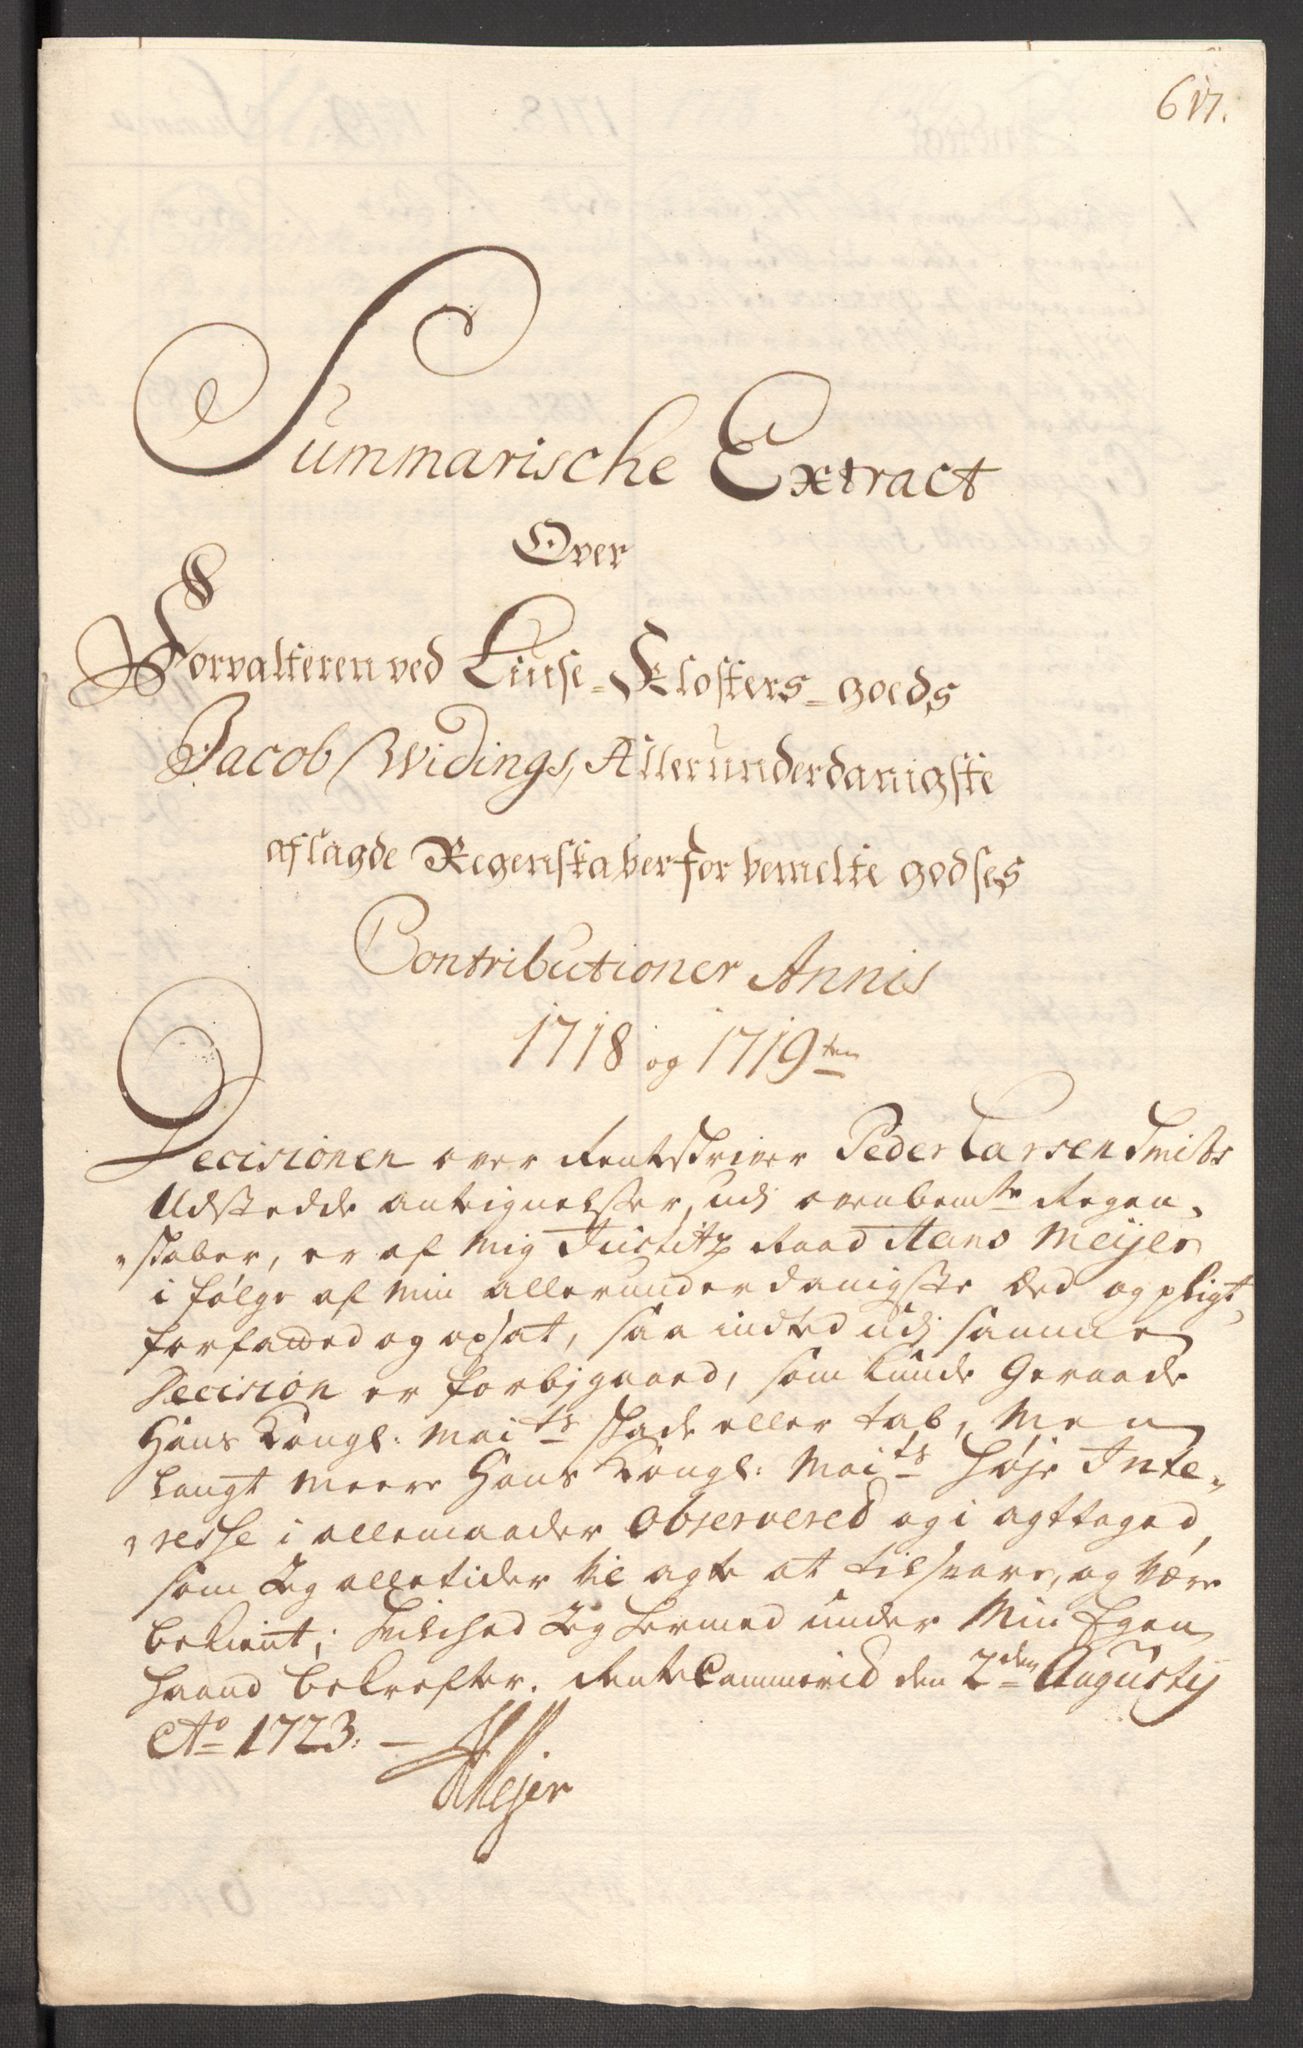 617.
Summarische Extract
Over
Forvalteren ved Liuse-Klosters-goeds
Jacob Widings, Allerunderdanigste
aflagde Regenskaber for bemelte godses
Contributioner Annis
1718 og 1719ten
Decisionen over Rentskriver Peder Larsen Smiths
Udstedde antignelsser, udj ovenbemte Regen-
-skaber, er af Mig Justitz Raad Hans Meijer
i følge af Min allerunderdanigste Æed og pligt,
forfatted og opsat, saa indted udj samme
Decision er forbjgaaed, som kunde Geraade
Hans Kongl: Maits skade eller tab, Men
langt Meere Hans Kongl: Maits høje Inte-
-resse i allemaader Observered og i agttaged,
som Jeg alletider vil agte at tilsvare, og være
bekient; hvilched Jeg hermed under Min Egen
haand bekrefter. RenteCammerid den 2den Augustij
Ao 1723. —
HMejer